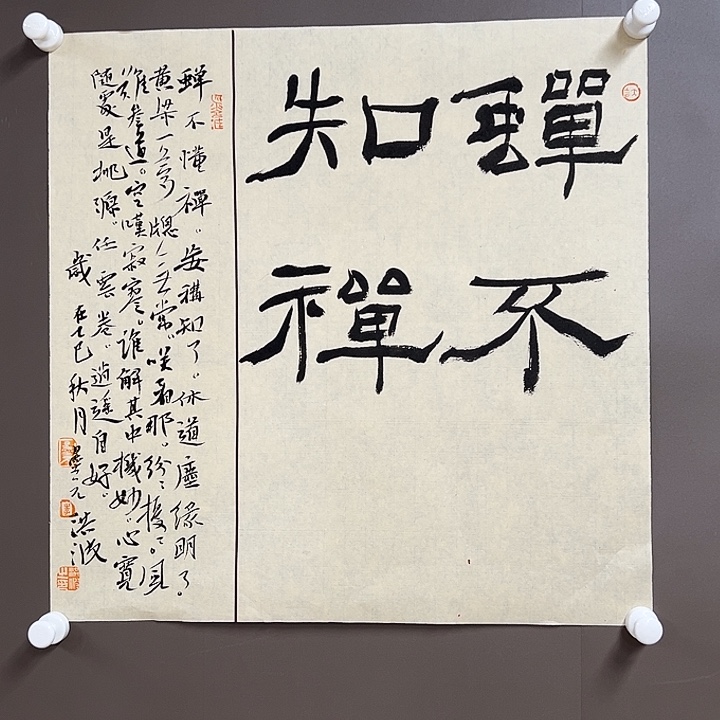 蟬不
知禪
蟬不懂禪。每稱知了。休道塵緣明了。
黃粱一夢。人世常。咲看那。紛紛擾擾。風
叁道。空嘆寂寥。誰解其中機妙。心寬
隨處是桃源。任雲卷。逍遙自好。
歲在乙巳秋月 洪波